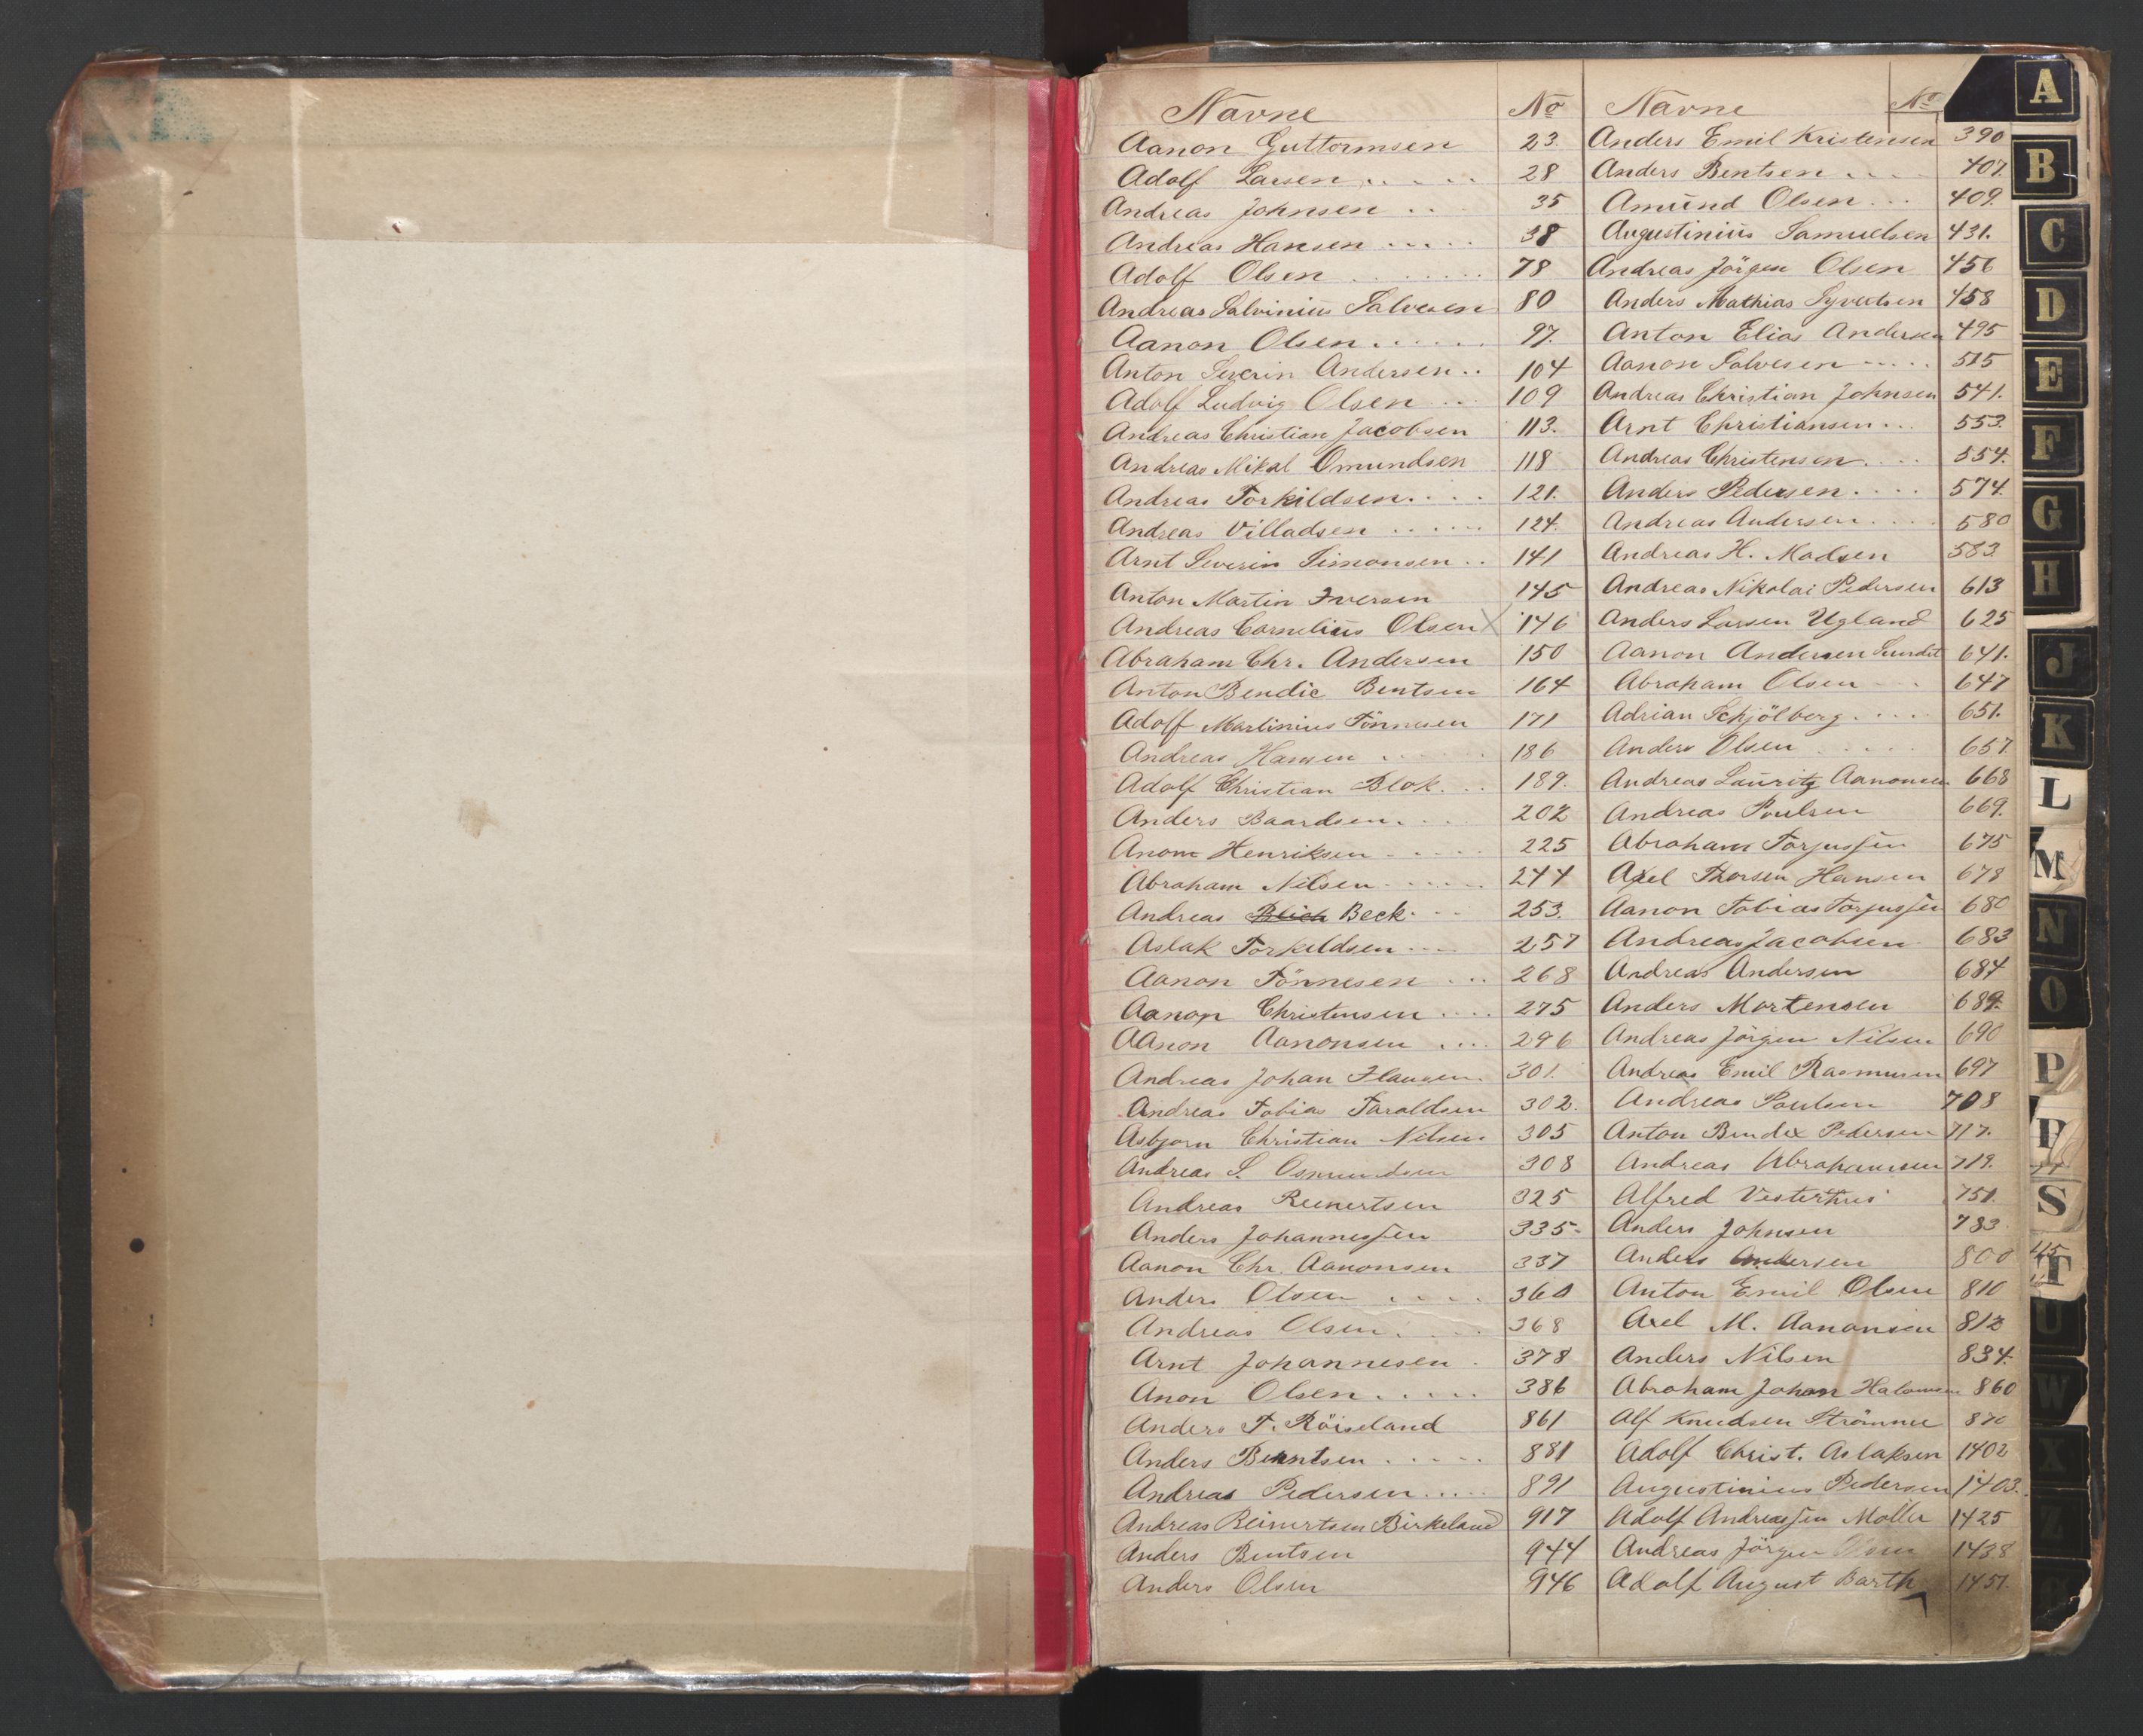 Navne No
Aanon Guttormsen 23.
Adolf Larsen 28
Andreas Johnsen 35
Andreas Hansen 38
Adolf Olsen 78
Andreas Salvinius Salvesen 80
Aanon Olsen 97.
Anton Severin Andersen 104
Adolf Ludvig Olsen 109
Andreas Christian Jacobsen 113.
Andreas Mikal Omundsen 118
Andreas Torkildsen 121.
Andreas Villadsen 124.
Arnt Severin Simonsen 141
Anton Martin Iversen 145
Andreas Cornelius Olsen 146
Abraham Chr. Andersen 150
Anton Bendic Bentsen 164
Adolf Martinius Tönnesen 171
Andreas Hansen 186
Adolf Christian Blok 189.
Anders Baardsen 202
Anom Henriksen 225
Abraham Nilsen 244
Andreas Blich Beck 253.
Aslak Torkeldsen 257
Aanon Tönnesen 268
Aanon Christensen 275
AAnon Aanonsen 296
Andreas Johan 301.
Andreas Tobias Taraldsen 302.
Asbjorn Christian Nilsen 305
Andreas S. Osmundsen 308
Andreas Reinertsen 325
Anders Johannessen 335
Aanon Chr. Aanonsen 337
Anders Olsen 360
Andreas Olsen 368
Arnt Johannesen 378
Anon Olsen 386
Anders T. Röiseland 861
Anders Berntsen 881
Andreas Pedersen 891
Andreas Reinertsen Birkeland 917
Anders Bentsen 944
Anders Olsen 946
Navne No
Anders Emil Kristensen 390
Anders Bentsen 407.
Amund Olsen 409.
Augustinius Samuelsen 431.
Andreas Jörgen Olsen 456
Anders Mathias Syvertsen 458
Anton Elias Andersen 495
Aanon Salvesen 515
Andreas Christian Johnsen 541.
Arnt Christiansen 553.
Andreas Christensen 554.
Anders Pedersen 574.
Andreas Andersen 580
Andreas H. Madsen 583.
Andreas Nikolai Pedersen 613
Anders Larsen Ugland 625
Aanon Andersen Sundet 641.
Abraham Olsen 647
Adrian Schjölberg 651.
Anders Olsen 657
Andreas Lauritz Aanonsen 668
Andreas Poulsen 669.
Abraham Torjussen 675
Axel Thorsen Hansen 678
Aanon Tobias Torjussen 680
Andreas Jacobsen 683
Andreas Andersen 684
Anders Mortensen 689.
Andreas Jörgen Nilsen 690
Andreas Emil Rasmusen 697
Andreas Poulsen 708
Anton Bendix Pedersen 717.
Andreas Abrahamsen 719.
Alfred Vesterhus 751.
Anders Johnsen 783.
Anders Andersen 800
Anton Emil Olsen 810
Axel M. Aanonsen 812
Anders Nilsen 834.
Abraham Johan 860
Alf Knudsen Strömme 870
Adolf Christ. Aslaksen 1402
Augustinius Pedersen 1403.
Adolf Andreassen Moller 1425
Andreas Jörgen Olsen 1438
Adolf August Barth 1451.
A
B
C
D
E
F
G
H
J
K
L
M
N
O
P
S
T
U
W
X
Z